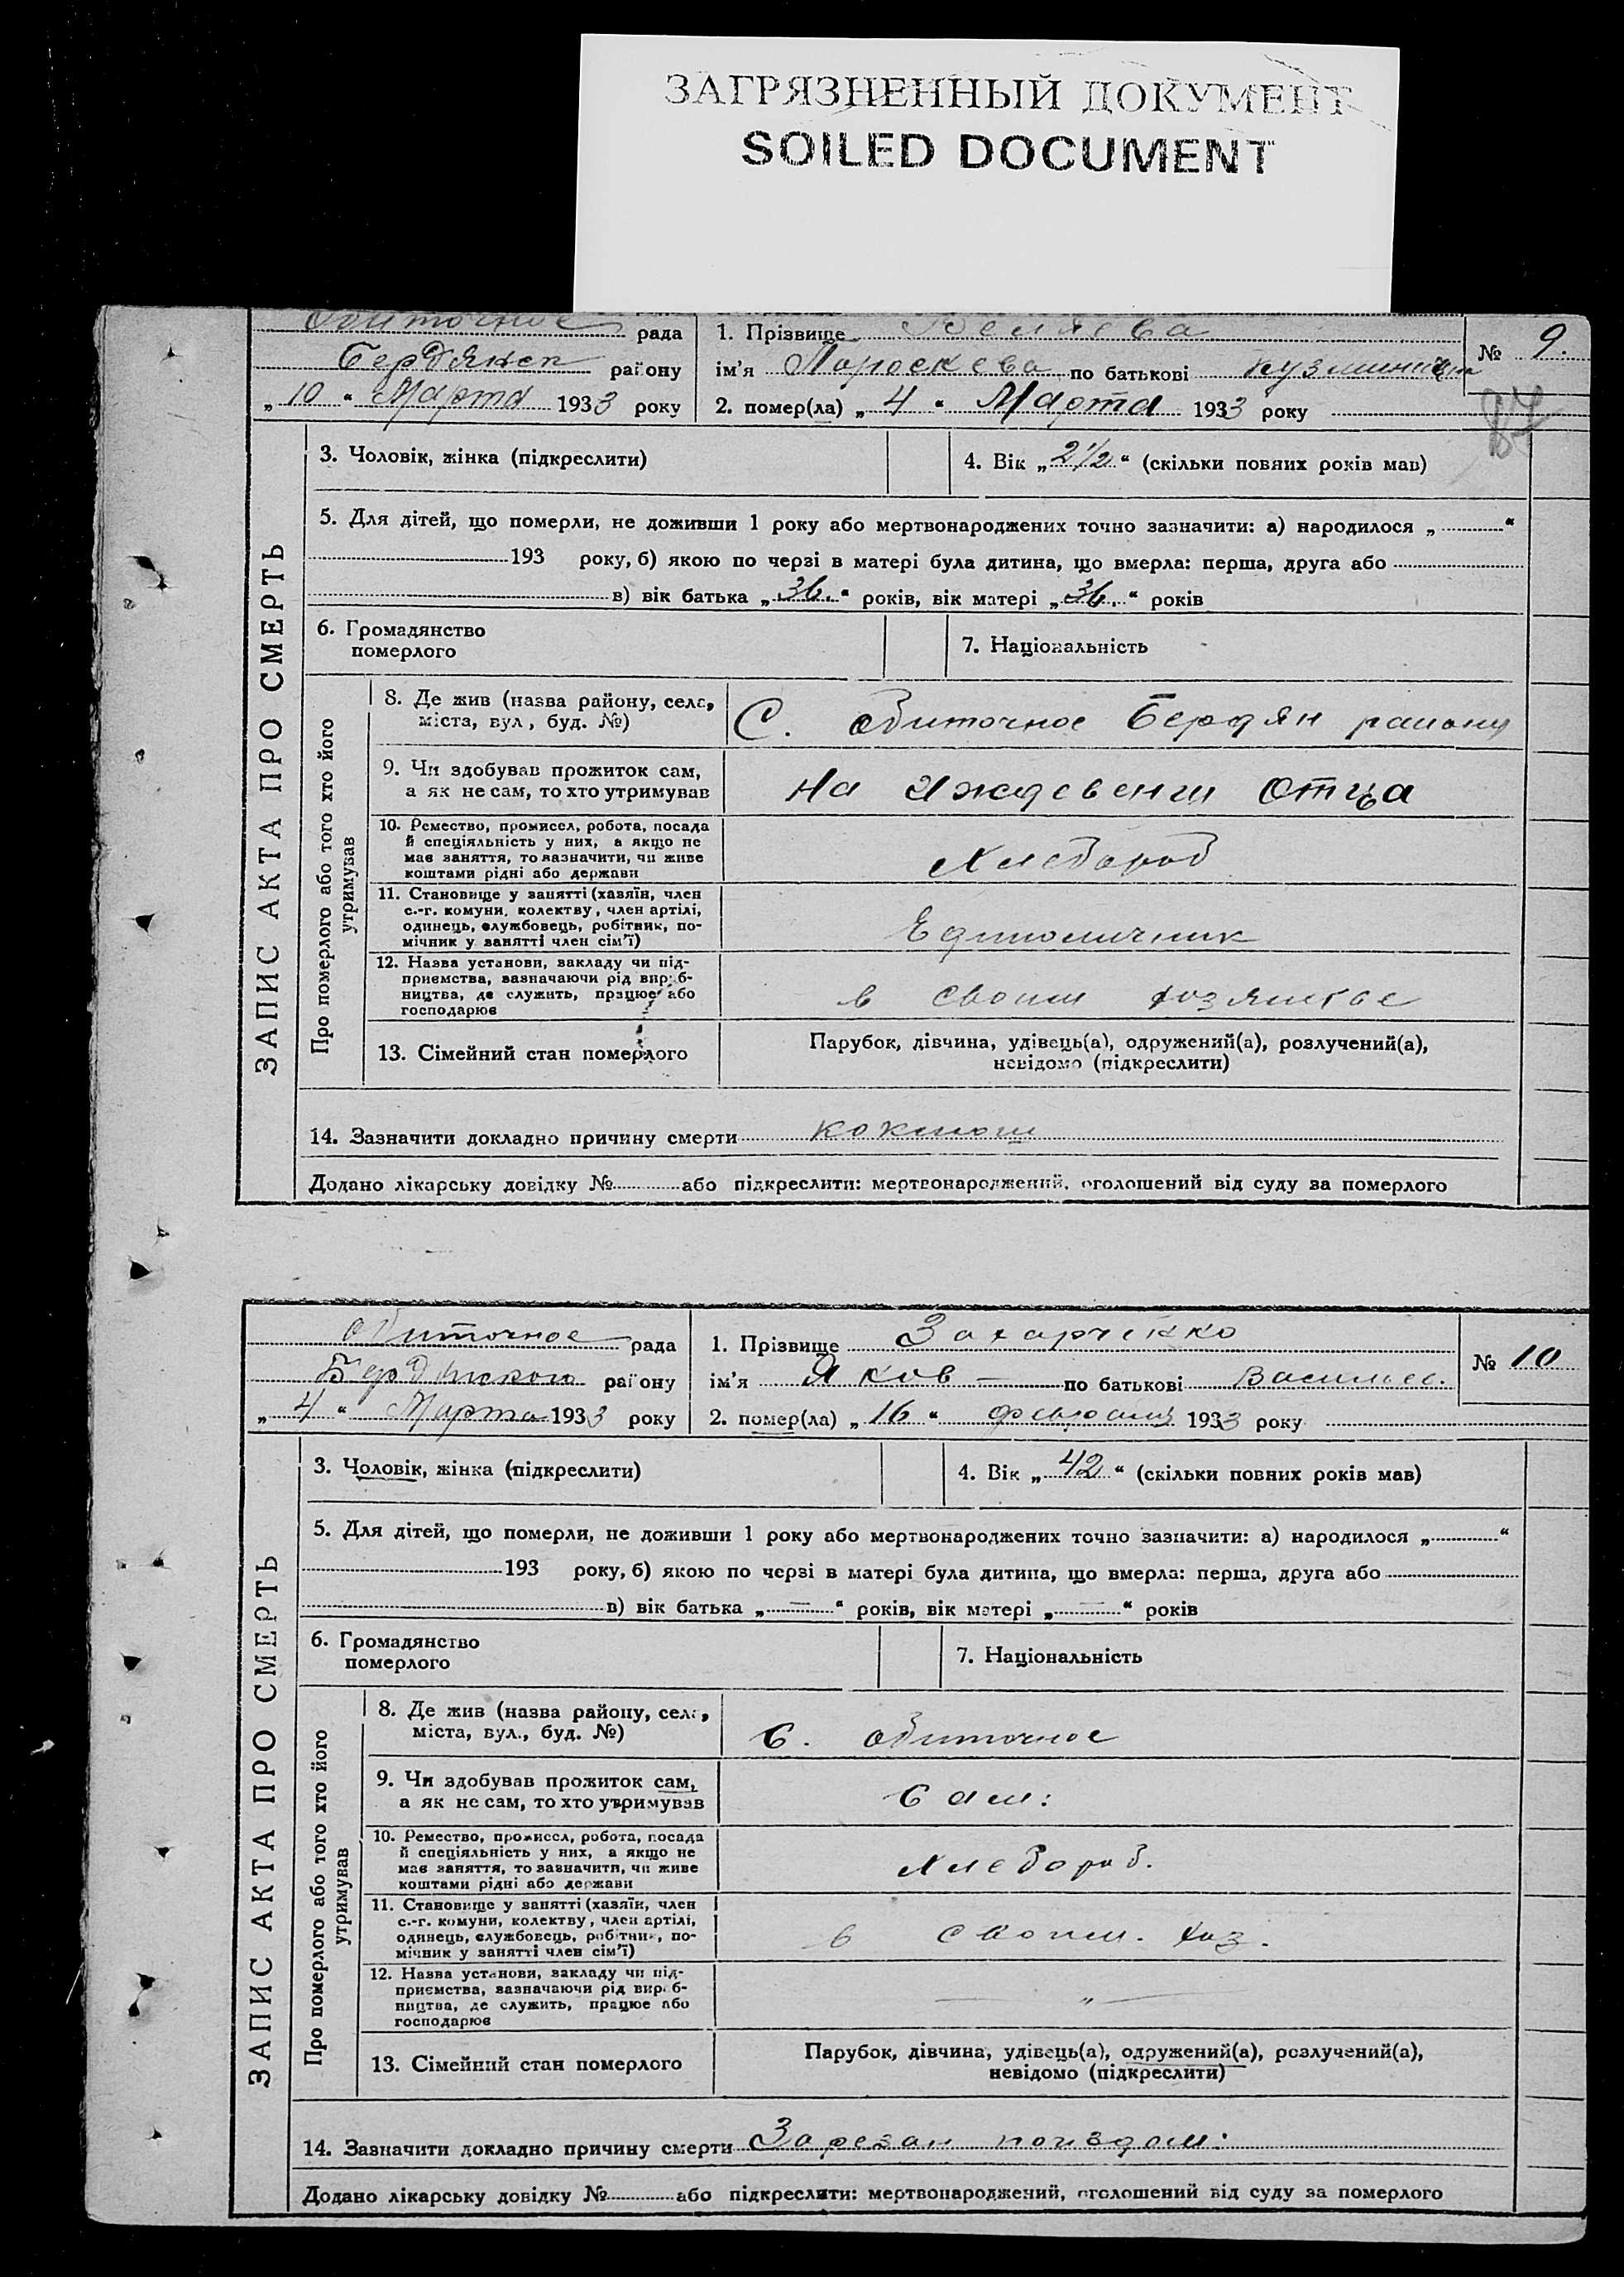 ЗАГРЯЗНЕННЫЙ ДОКУМЕНТ
SOILED DOCUMENT
Обиточное рада
Бердянск району
„ 10 “ Марта 1933 року
1. Прізвище Беляева
ім’я Пароскева по батькові
2. помер(ла) „ 4 “ Марта 1933 року
№ 9.
87
ЗАПИС АКТА ПРО СМЕРТЬ
3. Чоловік, жінка (підкреслити)
4. Вік „ 2½ “ (скільки повних років мав)
5. Для дітей, що померли, не доживши 1 року або мертвонароджених точно зазначити: а) народилося „ “
193 року, б) якою по черзі в матері була дитина, що вмерла: перша, друга або
в) вік батька „ 36. “ років, вік матері „ 36. “ років
6. Громадянство
померлого
7. Національність
Про померлого або того хто його
утримував
8. Де жив (назва району, села,
міста, вул, буд. №)
С. Обиточное Бердян району
9. Чи здобував прожиток сам,
а як не сам, то хто утримував
На Иждевении Отца
10. Ремество, промисел, робота, посада
й спеціяльність у них, а якщо не
має заняття, то зазначити, чи живе
коштами рідні або держави
Хлебороб
11. Становище у занятті (хазяїн, член
с.-г. комуни, колективу, член артілі,
одинець, службовець, робітник, по-
мічник у занятті член сім’ї)
Единоличник
12. Назва установи, закладу чи під-
приємства, зазначаючи рід вироб-
ництва, де служить, працює або
господарює
в своим хозяистве
13. Сімейний стан померлого
Парубок, дівчина, удівець(а), одружений(а), розлучений(а),
невідомо (підкреслити)
14. Зазначити докладно причину смерти коклюш
Додано лікарську довідку № або підкреслити: мертвонароджений, оголошений від суду за померлого
Обиточное рада
району
„ 4 “ Марта 1933 року
1. Прізвище Захарченко
ім’я Яков — по батькові Васильев.
2. помер(ла) „ 16 “ 1933 року
№ 10
ЗАПИС АКТА ПРО СМЕРТЬ
3. Чоловік, жінка (підкреслити)
4. Вік „ 42 “ (скільки повних років мав)
5. Для дітей, що померли, не доживши 1 року або мертвонароджених точно зазначити: а) народилося „ “
193 року, б) якою по черзі в матері була дитина, що вмерла: перша, друга або
в) вік батька „ — “ років, вік матері „ — “ років
6. Громадянство
померлого
7. Національність
Про померлого або того хто його
утримував
8. Де жив (назва району, села,
міста, вул., буд. №)
С. Обиточное
9. Чи здобував прожиток сам,
а як не сам, то хто утримував
Сам:
10. Ремество, промисел, робота, посада
й спеціяльність у них, а якщо не
має заняття, то зазначити, чи живе
коштами рідні або держави
Хлебороб.
11. Становище у занятті (хазяїн, член
с.-г. комуни, колективу, член артілі,
одинець, службовець, робітник, по-
мічник у занятті член сім’ї)
в своим. хоз.
12. Назва установи, закладу чи під-
приємства, зазначаючи рід вироб-
ництва, де служить, працює або
господарює
— „ —
13. Сімейний стан померлого
Парубок, дівчина, удівець(а), одружений(а), розлучений(а),
невідомо (підкреслити)
14. Зазначити докладно причину смерти Зарезан поиздом:
Додано лікарську довідку № або підкреслити: мертвонароджений, оголошений від суду за померлого